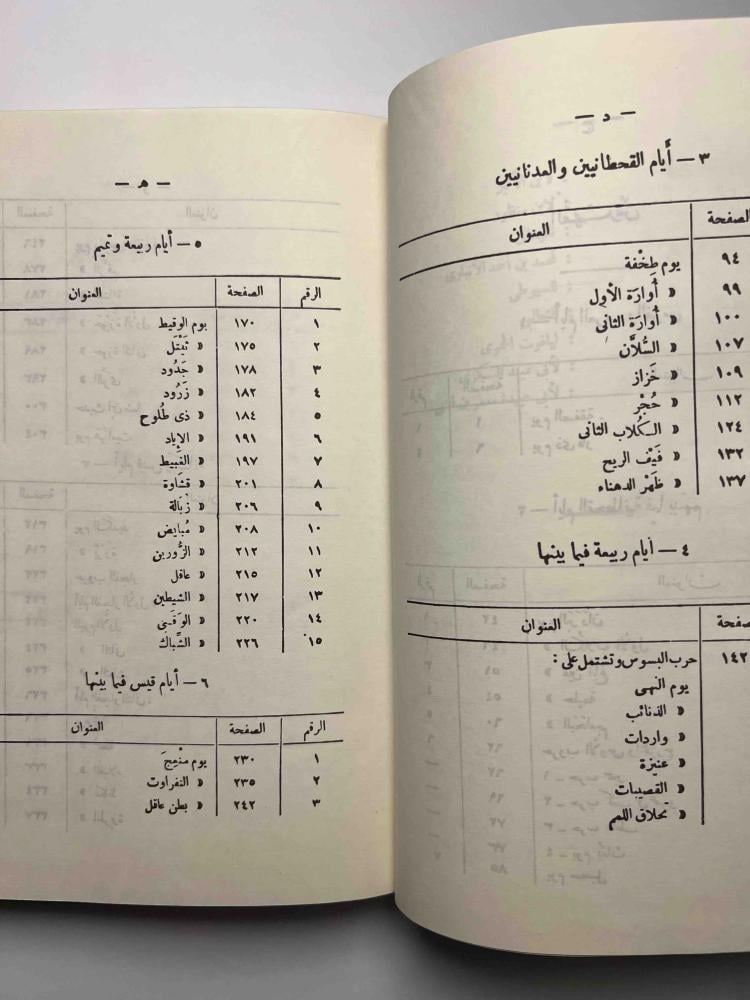 — د —
٣ — أيام القحطانيين والعدنانيين
الصفحة العنوان
٩٤ يوم طِخْفة
٩٩ « أُوارَة الأول
١٠٠ « أوارَة الثانى
١٠٧ « السُّلاَّن
١٠٩ « خَزاز
١١٢ « حُجْر
١٢٤ « الكُلاب الثانى
١٣٢ « فَيْف الريح
١٣٧ « ظَهْر الدهناء
٤ — أيام ربيعة فيما بينها
صفحة العنوان
١٤٢ حرب البسوس وتشتمل على :
يوم النهى
« الذنائب
« واردات
« عنيزة
« القصيبات
« تحلاق اللمم
— ه —
٥ — أيام ربيعة وتميم
الرقم الصفحة العنوان
١ ١٧٠ يوم الوقيط
٢ ١٧٥ « ثَيْتَل
٣ ١٧٨ « جَدُود
٤ ١٨٢ « زَرُود
٥ ١٨٤ « ذى طلُوح
٦ ١٩١ « الإياد
٧ ١٩٧ « الغَبيط
٨ ٢٠١ « قشاوة
٩ ٢٠٦ « زُبالة
١٠ ٢٠٨ « مُبايض
١١ ٢١٢ « الزُّورين
١٢ ٢١٥ « عاقل
١٣ ٢١٧ « الشيطين
١٤ ٢٢٠ « الوَقَبى
١٥ ٢٢٦ « الشِّباك
٦ — أيام قيس فيما بينها
الرقم الصفحة العنوان
١ ٢٣٠ يوم مَنْعِج
٢ ٢٣٥ « النفراوت
٣ ٢٤٢ « بطن عاقل